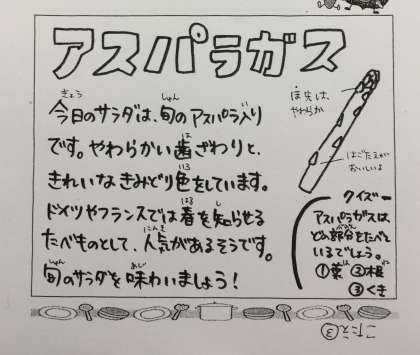 アスパラガス
今日のサラダは、旬のアスパラ入り
です。やわらかい歯ざわりと、
きれいなきみどり色をしています。
ドイツやフランスでは春を知らせる
たべものとして、人気があるそうです。
旬のサラダを味わいましょう!
ほ先は、
やわらか
はごたえが
おいしいよ
クイズー
アスパラガスは、
どの部分をたべて
いるでしょう。
①葉 ②根
③くき
こたえ ③